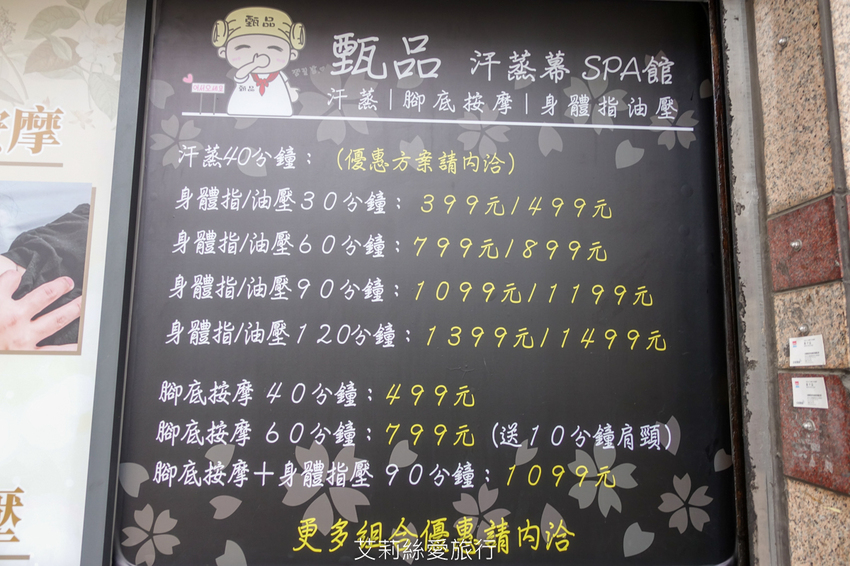 甄品
甄品 汗蒸幕 SPA館
汗蒸|腳底按摩|身體指油壓
甄品
按摩
汗蒸40分鐘：（優惠方案請內洽）
身體指/油壓30分鐘：399元/499元
身體指/油壓60分鐘：799元/899元
身體指/油壓90分鐘：1099元/1199元
身體指/油壓120分鐘：1399元/1499元
腳底按摩 40分鐘：499元
腳底按摩 60分鐘：799元（送10分鐘肩頸）
腳底按摩＋身體指壓 90分鐘：1099元
壓
更多組合優惠請內洽
艾莉絲愛旅行